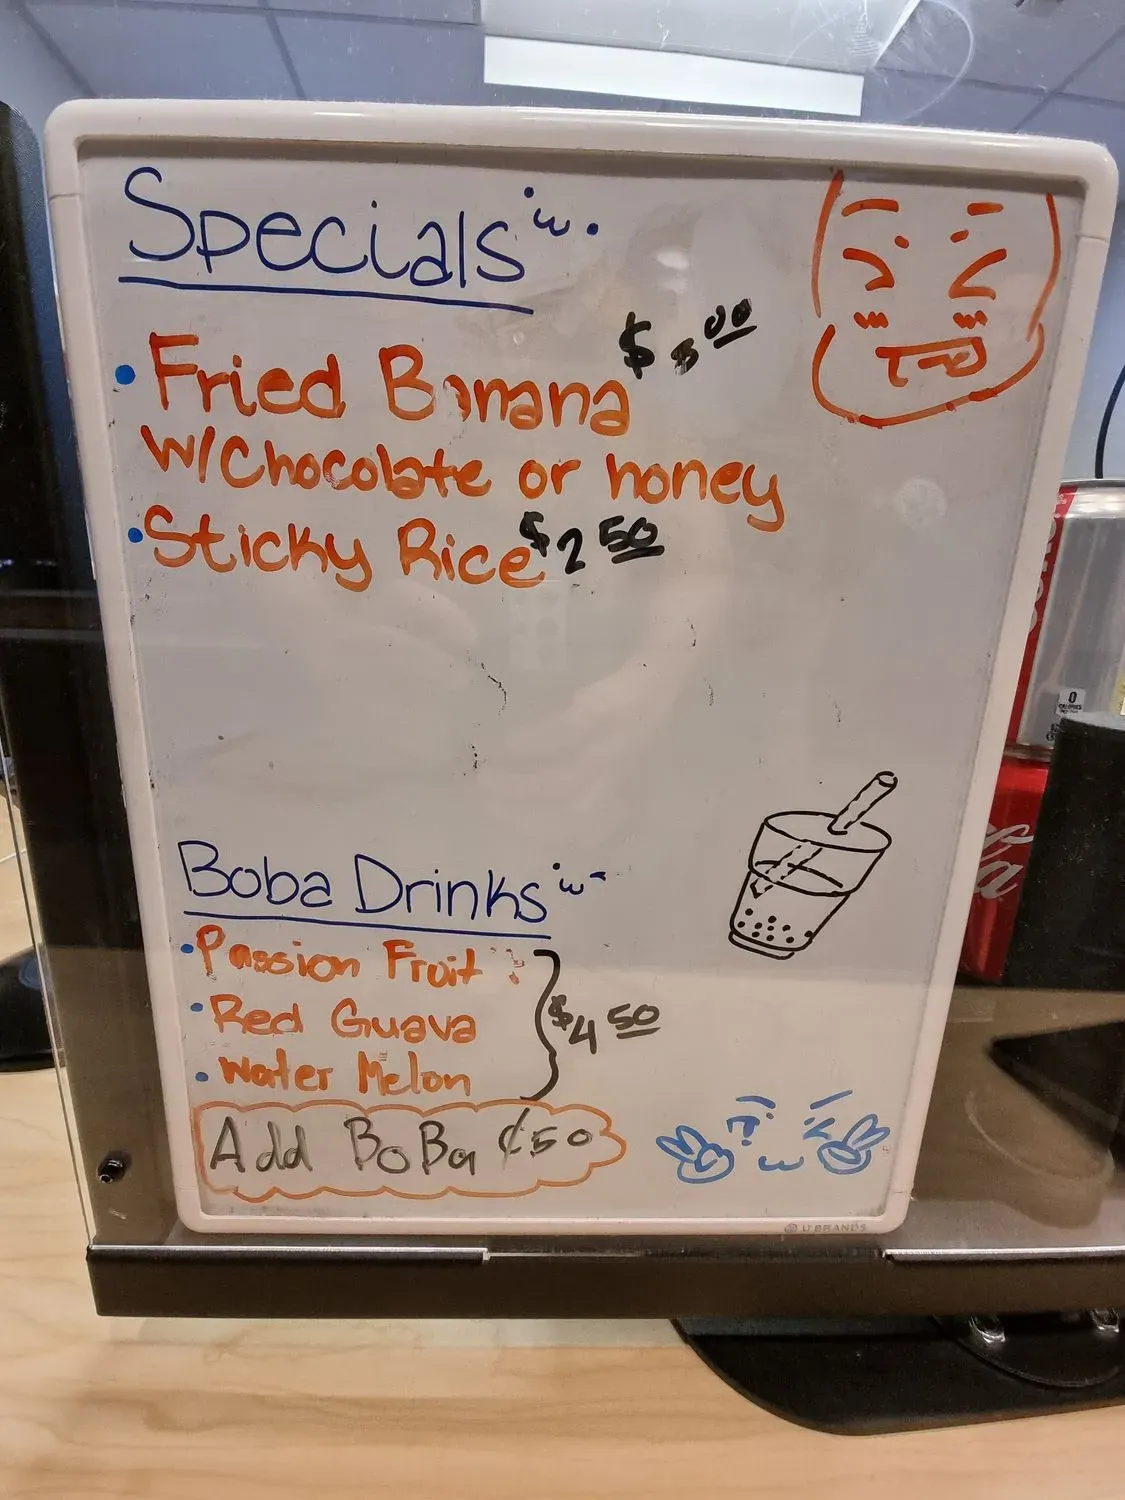 Specials
$ 5.00
• Fried Banana
W/Chocolate or honey
• Sticky Rice $2.50
Boba Drinks
• Passion Fruit
• Red Guava $4.50
• Water Melon
Add BoBa ¢50
U BRANDS
0
CALORIES